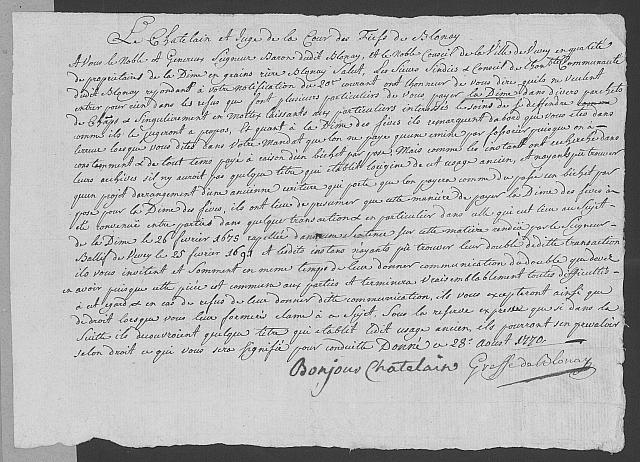 Le Chatelain et Juge de la Cour des Fiefs de Blonay
A Vous le Noble & Genereux Seigneur Baron dudit Blonay, et le Noble Conseil de la Ville de Vevey en qualité
de proprietaires de la Dime en grains riere Blonay Salut, Les Sieurs Sindics & Conseil de l'hon.ble Communauté
dudit Blonay repondant à votre Notification du 20e courant ont l'honneur de Vous dire qu'ils ne veulent
entrer pour rien dans les refus que font plusieurs particuliers de Vous payer la Dime dans divers parchets
de Champs & Singulierement en Mottex laissants aux particuliers interessés le soin de s'y deffendre
comme ils le jugeront a propos, Et quant à la Dime des féves ils remarquent d'abord que Vous etes dans
l'erreur lorsque Vous dites dans Votre Mandat que l'on ne paye qu'une emine par fossorier puisque on a
constamment & de tout tems payé à raison d'un bichet par pose, Mais comme les instants ont recherché dans
leurs archives s'il n'y auroit pas quelque titre qui etablit l'origine de cet usage ancien, et n'ayants pû trouver
qu'un projet d'arrangement d'un ancienne ecriture qui porte que l'on payera comme du passé un bichet par
pose pour la Dime des féves, ils ont lieu de presumer que cette maniere de payer la Dime des féves a
été convenue entre parties dans quelque transaction & en particulier dans celle qui eut lieu au Sujet
de la Dime le 26 fevrier 1675 rapellée dans une Sentence sur cette matiere rendue par le Seigneur
Ballif de Vevey le 25 fevrier 169 Et lesdits instans n'ayants pû trouver leur double de dite transaction
ils vous invitent et somment en meme temps de leur donner communication du double que devez
en avoir puisque cette piéce est commune aux parties et terminera vraisemblablement toutes difficultés
à cet egard & en cas de refus de leur donner dite communication, ils vous excepteront ainsi que
de droit lorsque vous leur formerés clame à ce Sujet. Sous la reserve expresse que si dans la
Suitte ils decouvroient quelque titre qui etablit ledit usage ancien, ils pourront s'en prevaloir
selon droit ce qui vous sera signifié pour conduitte Donné ce 28e Aoust 1770.
Bonjour Chatelain Greffe de Blonay